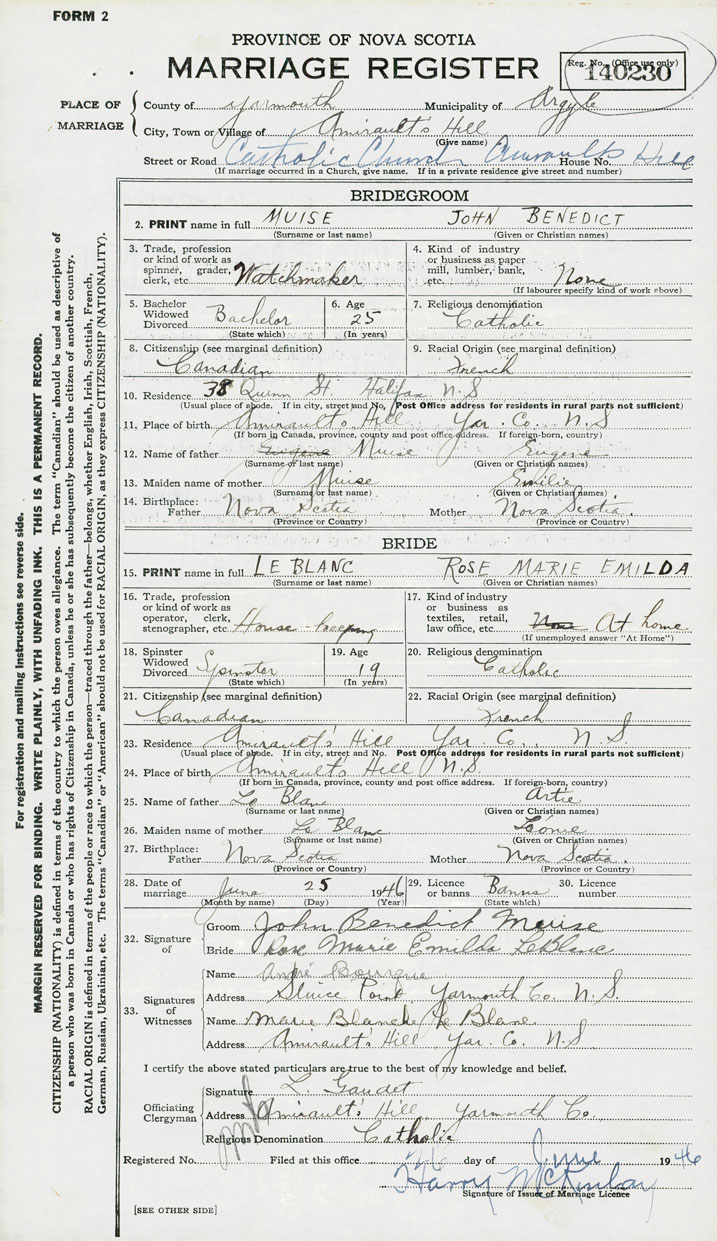 FORM 2
PROVINCE OF NOVA SCOTIA
MARRIAGE REGISTER
Reg. No. (Office use only)
140230
PLACE OF MARRIAGE
County of Yarmouth Municipality of Argyle
City, Town or Village of Amirault's Hill
(Give name)
Street or Road Catholic Church Amiraults House No. Hill
(If marriage occurred in a Church, give name. If in a private residence give street and number)
BRIDEGROOM
2. PRINT name in full MUISE JOHN BENEDICT
(Surname or last name) (Given or Christian names)
3. Trade, profession or kind of work as spinner, grader, clerk, etc. Watchmaker
4. Kind of industry or business as paper mill, lumber, bank, etc. None
(If labourer specify kind of work above)
5. Bachelor Widowed Divorced Bachelor
(State which)
6. Age 25
(In years)
7. Religious denomination Catholic
8. Citizenship (see marginal definition) Canadian
9. Racial Origin (see marginal definition) French
10. Residence 38 Quinn St. Halifax N.S
(Usual place of abode. If in city, street and No. Post Office address for residents in rural parts not sufficient)
11. Place of birth Amirault's Hill Yar. Co. N.S
(If born in Canada, province, county and post office address. If foreign-born, country)
12. Name of father Eugene Muise Eugene
(Surname or last name) (Given or Christian names)
13. Maiden name of mother Muise Emilie
(Surname or last name) (Given or Christian names)
14. Birthplace: Father Nova Scotia Mother Nova Scotia.
(Province or Country) (Province or Country)
BRIDE
15. PRINT name in full LE BLANC ROSE MARIE EMILDA
(Surname or last name) (Given or Christian names)
16. Trade, profession or kind of work as operator, clerk, stenographer, etc. House-keeping
17. Kind of industry or business as textiles, retail, law office, etc. None At home
(If unemployed answer "At Home")
18. Spinster Widowed Divorced Spinster
(State which)
19. Age 19
(In years)
20. Religious denomination Catholic
21. Citizenship (see marginal definition) Canadian
22. Racial Origin (see marginal definition) French
23. Residence Amirault's Hill Yar. Co. N.S
(Usual place of abode. If in city, street and No. Post Office address for residents in rural parts not sufficient)
24. Place of birth Amirault's Hill N.S
(If born in Canada, province, county and post office address. If foreign-born, country)
25. Name of father Le Blanc Artie
(Surname or last name) (Given or Christian names)
26. Maiden name of mother Le Blanc
(Surname or last name) (Given or Christian names)
27. Birthplace: Father Nova Scotia Mother Nova Scotia.
(Province or Country) (Province or Country)
28. Date of marriage June 25 1946
(Month by name) (Day) (Year)
29. Licence or banns Banns
(State which)
30. Licence number
32. Signature of
Groom John Benedict Muise
Bride Rose Marie Emilda LeBlanc
33. Signatures of Witnesses
Name André Bourque
Address Sluice Point, Yarmouth Co. N.S.
Name Marie Blanche Le Blanc.
Address Amirault's Hill Yar. Co. N.S
I certify the above stated particulars are true to the best of my knowledge and belief.
Officiating Clergyman
Signature L. Gaudet
Address Amirault's Hill Yarmouth Co.
Religious Denomination Catholic
Registered No. Filed at this office 26 day of June 1946
Harry McKinlay
Signature of Issuer of Marriage Licence
[SEE OTHER SIDE]
For registration and mailing instructions see reverse side.
MARGIN RESERVED FOR BINDING. WRITE PLAINLY, WITH UNFADING INK. THIS IS A PERMANENT RECORD.
CITIZENSHIP (NATIONALITY) is defined in terms of the country to which the person owes allegiance. The term "Canadian" should be used as descriptive of
a person who was born in Canada or who has rights of Citizenship in Canada, unless he or she has subsequently become the citizen of another country.
RACIAL ORIGIN is defined in terms of the people or race to which the person—traced through the father—belongs, whether English, Irish, Scottish, French,
German, Russian, Ukrainian, etc. The terms "Canadian" or "American" should not be used for RACIAL ORIGIN, as they express CITIZENSHIP (NATIONALITY).